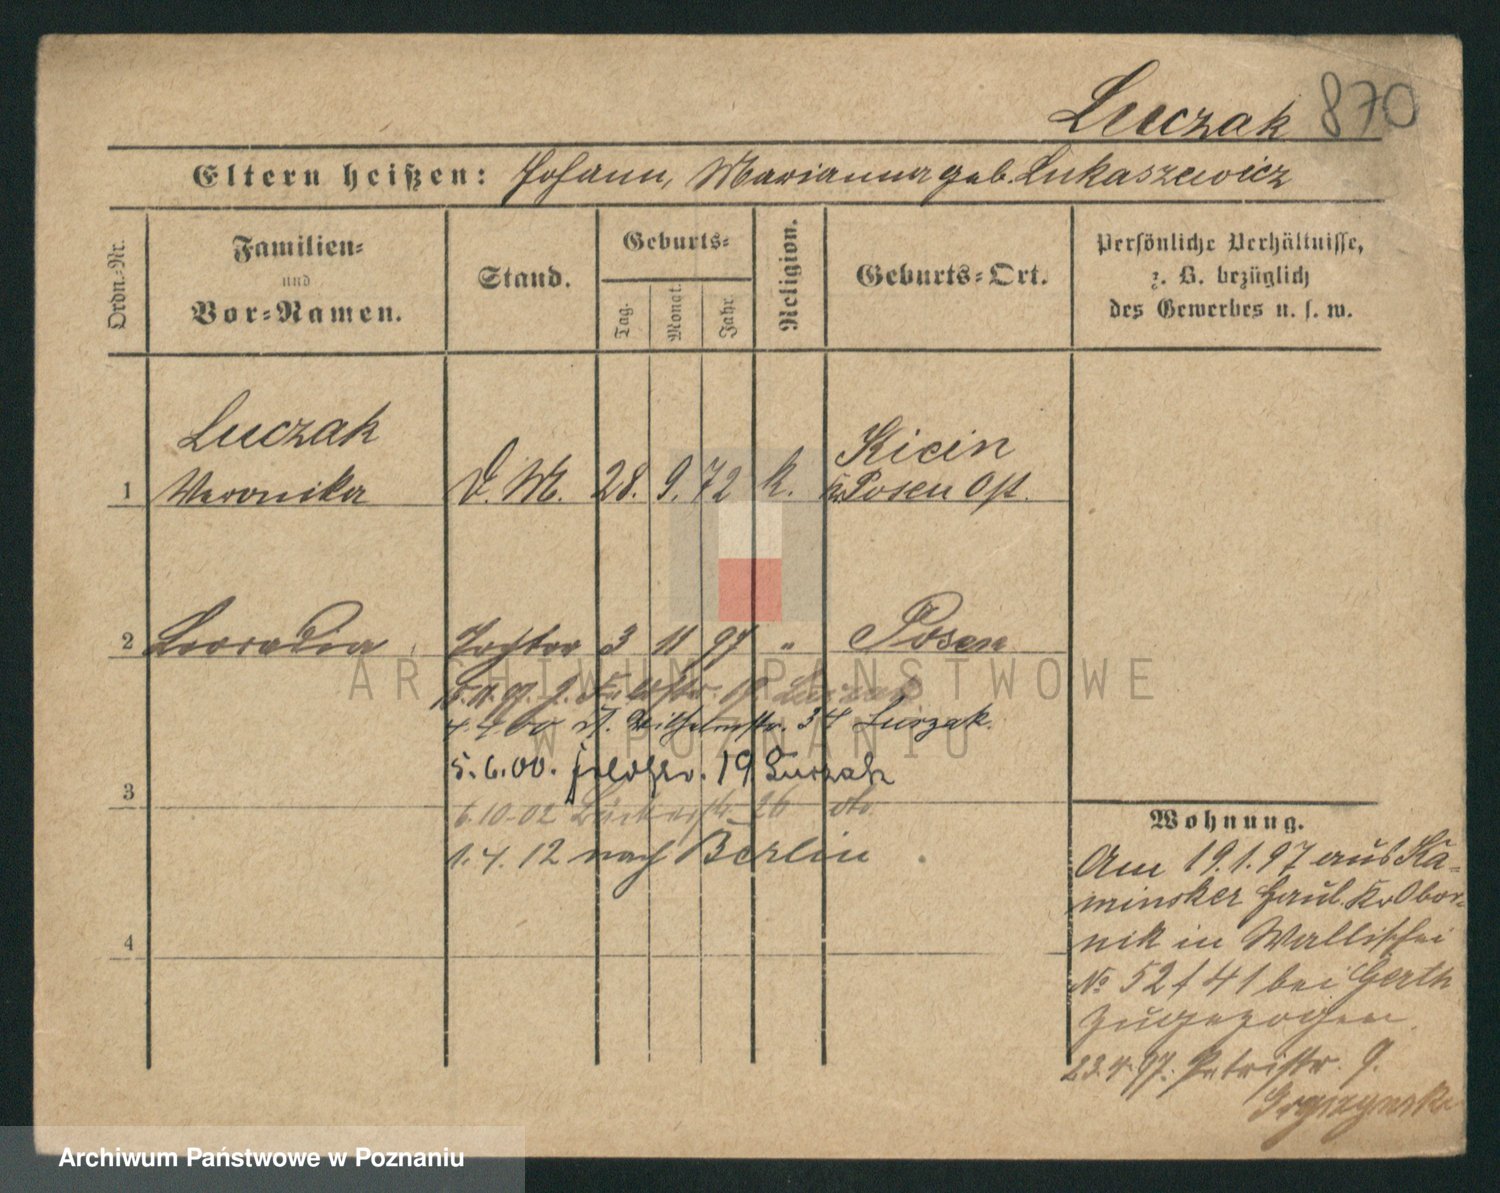 Luczak 870
Eltern heißen: Johann, Marianna geb. Lukaszewicz
Ordn.-Nr.
Familien-
und
Vor-Namen.
Stand.
Geburts-
Tag.
Monat.
Jahr
Religion.
Geburts-Ort.
Persönliche Verhältnisse,
z. B. bezüglich
des Gewerbes u. s. w.
Luczak
Kicin
1 Veronika D. M. 28. 9. 72 k. Kr. Posen Ost.
2 Leocadia Tochter 3 11 97 " Posen
ARCHIWUM PAŃSTWOWE
W POZNANIU
4.4.00 St. Wilhelmstr. 34 Luczak.
5.6.00. 19 Luczak
3
6.10.02 Bäckerstr. 26
1.4.12 nach Berlin
4
Wohnung.
Am 19.1.97 aus Ka-
minsker Haul. Kr. Obor-
nik in Wallischei
No 52/41 bei Gerth
zugezogen.
23.4.97. Petristr. 9.
Archiwum Państwowe w Poznaniu